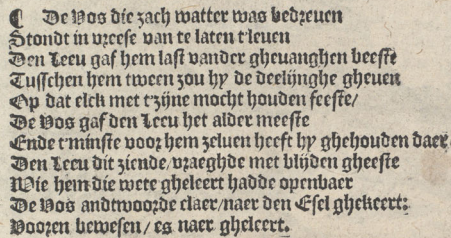 ¶ De Vos die zach watter was bedreuen
Stondt in vreese van te laten t'leuen
Den Leeu gaf hem last vander gheuanghen beeste
Tusschen hem tween zou hy de deelijnghe gheuen
Op dat elck met t'zijne mocht houden feeste/
De Vos gaf den Leeu het alder meeste
Ende t'minste voor hem zeluen heeft hy ghehouden daer.
Den Leeu dit ziende/vraeghde met blijden gheeste
Wie hem die wete gheleert hadde openbaer
De Vos andtwoorde claer/naer den Esel ghekeert:
Vooren bewesen/ es naer gheleert.